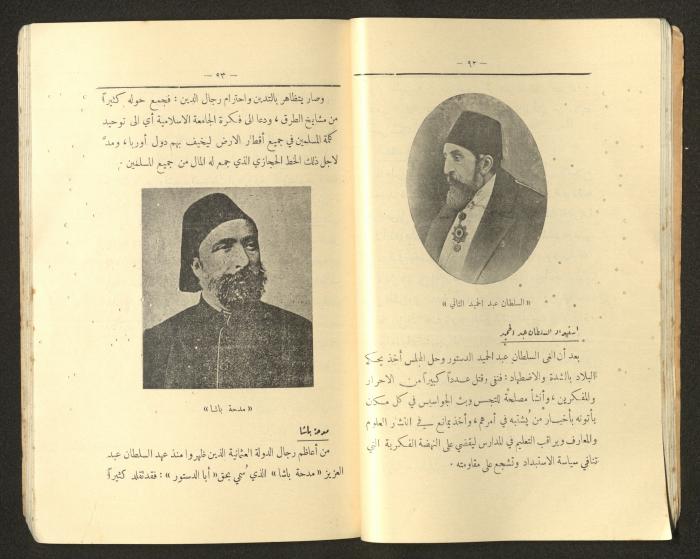 — ٩٢ —
« السلطان عبد الحميد الثاني »
استبداد السلطان عبد الحميد
بعد أن الغى السلطان عبد الحميد الدستور وحل المجلس أخذ يحكم
البلاد بالشدة والاضطهاد : فنفى وقتل عدداً كبيراً من الاحرار
والمفكرين ، وأنشأ مصلحة للتجسس وبث الجواسيس في كل مكان
يأتونه بأخبار من يُشتبه في أمرهم ، وأخذ يمانع في انتشار العلوم
والمعارف ويراقب التعليم في المدارس ليقضي على النهضة الفكرية التي
تنافي سياسة الاستبداد وتشجع على مقاومته .
— ٩٣ —
وصار يتظاهر بالتدين واحترام رجال الدين : فجمع حوله كثيراً
من مشايخ الطرق ، ودعا الى فكرة الجامعة الاسلامية أي الى توحيد
كلمة المسلمين في جميع أقطار الارض ليخيف بهم دول أوربا ، ومدّ
لاجل ذلك الخط الحجازي الذي جمع له المال من جميع المسلمين .
« مدحة باشا »
مدحة باشا
من أعاظم رجال الدولة العثمانية الذين ظهروا منذ عهد السلطان عبد
العزيز « مدحة باشا » الذي سُمي بحق « أبا الدستور » : فقد تقلد كثيراً